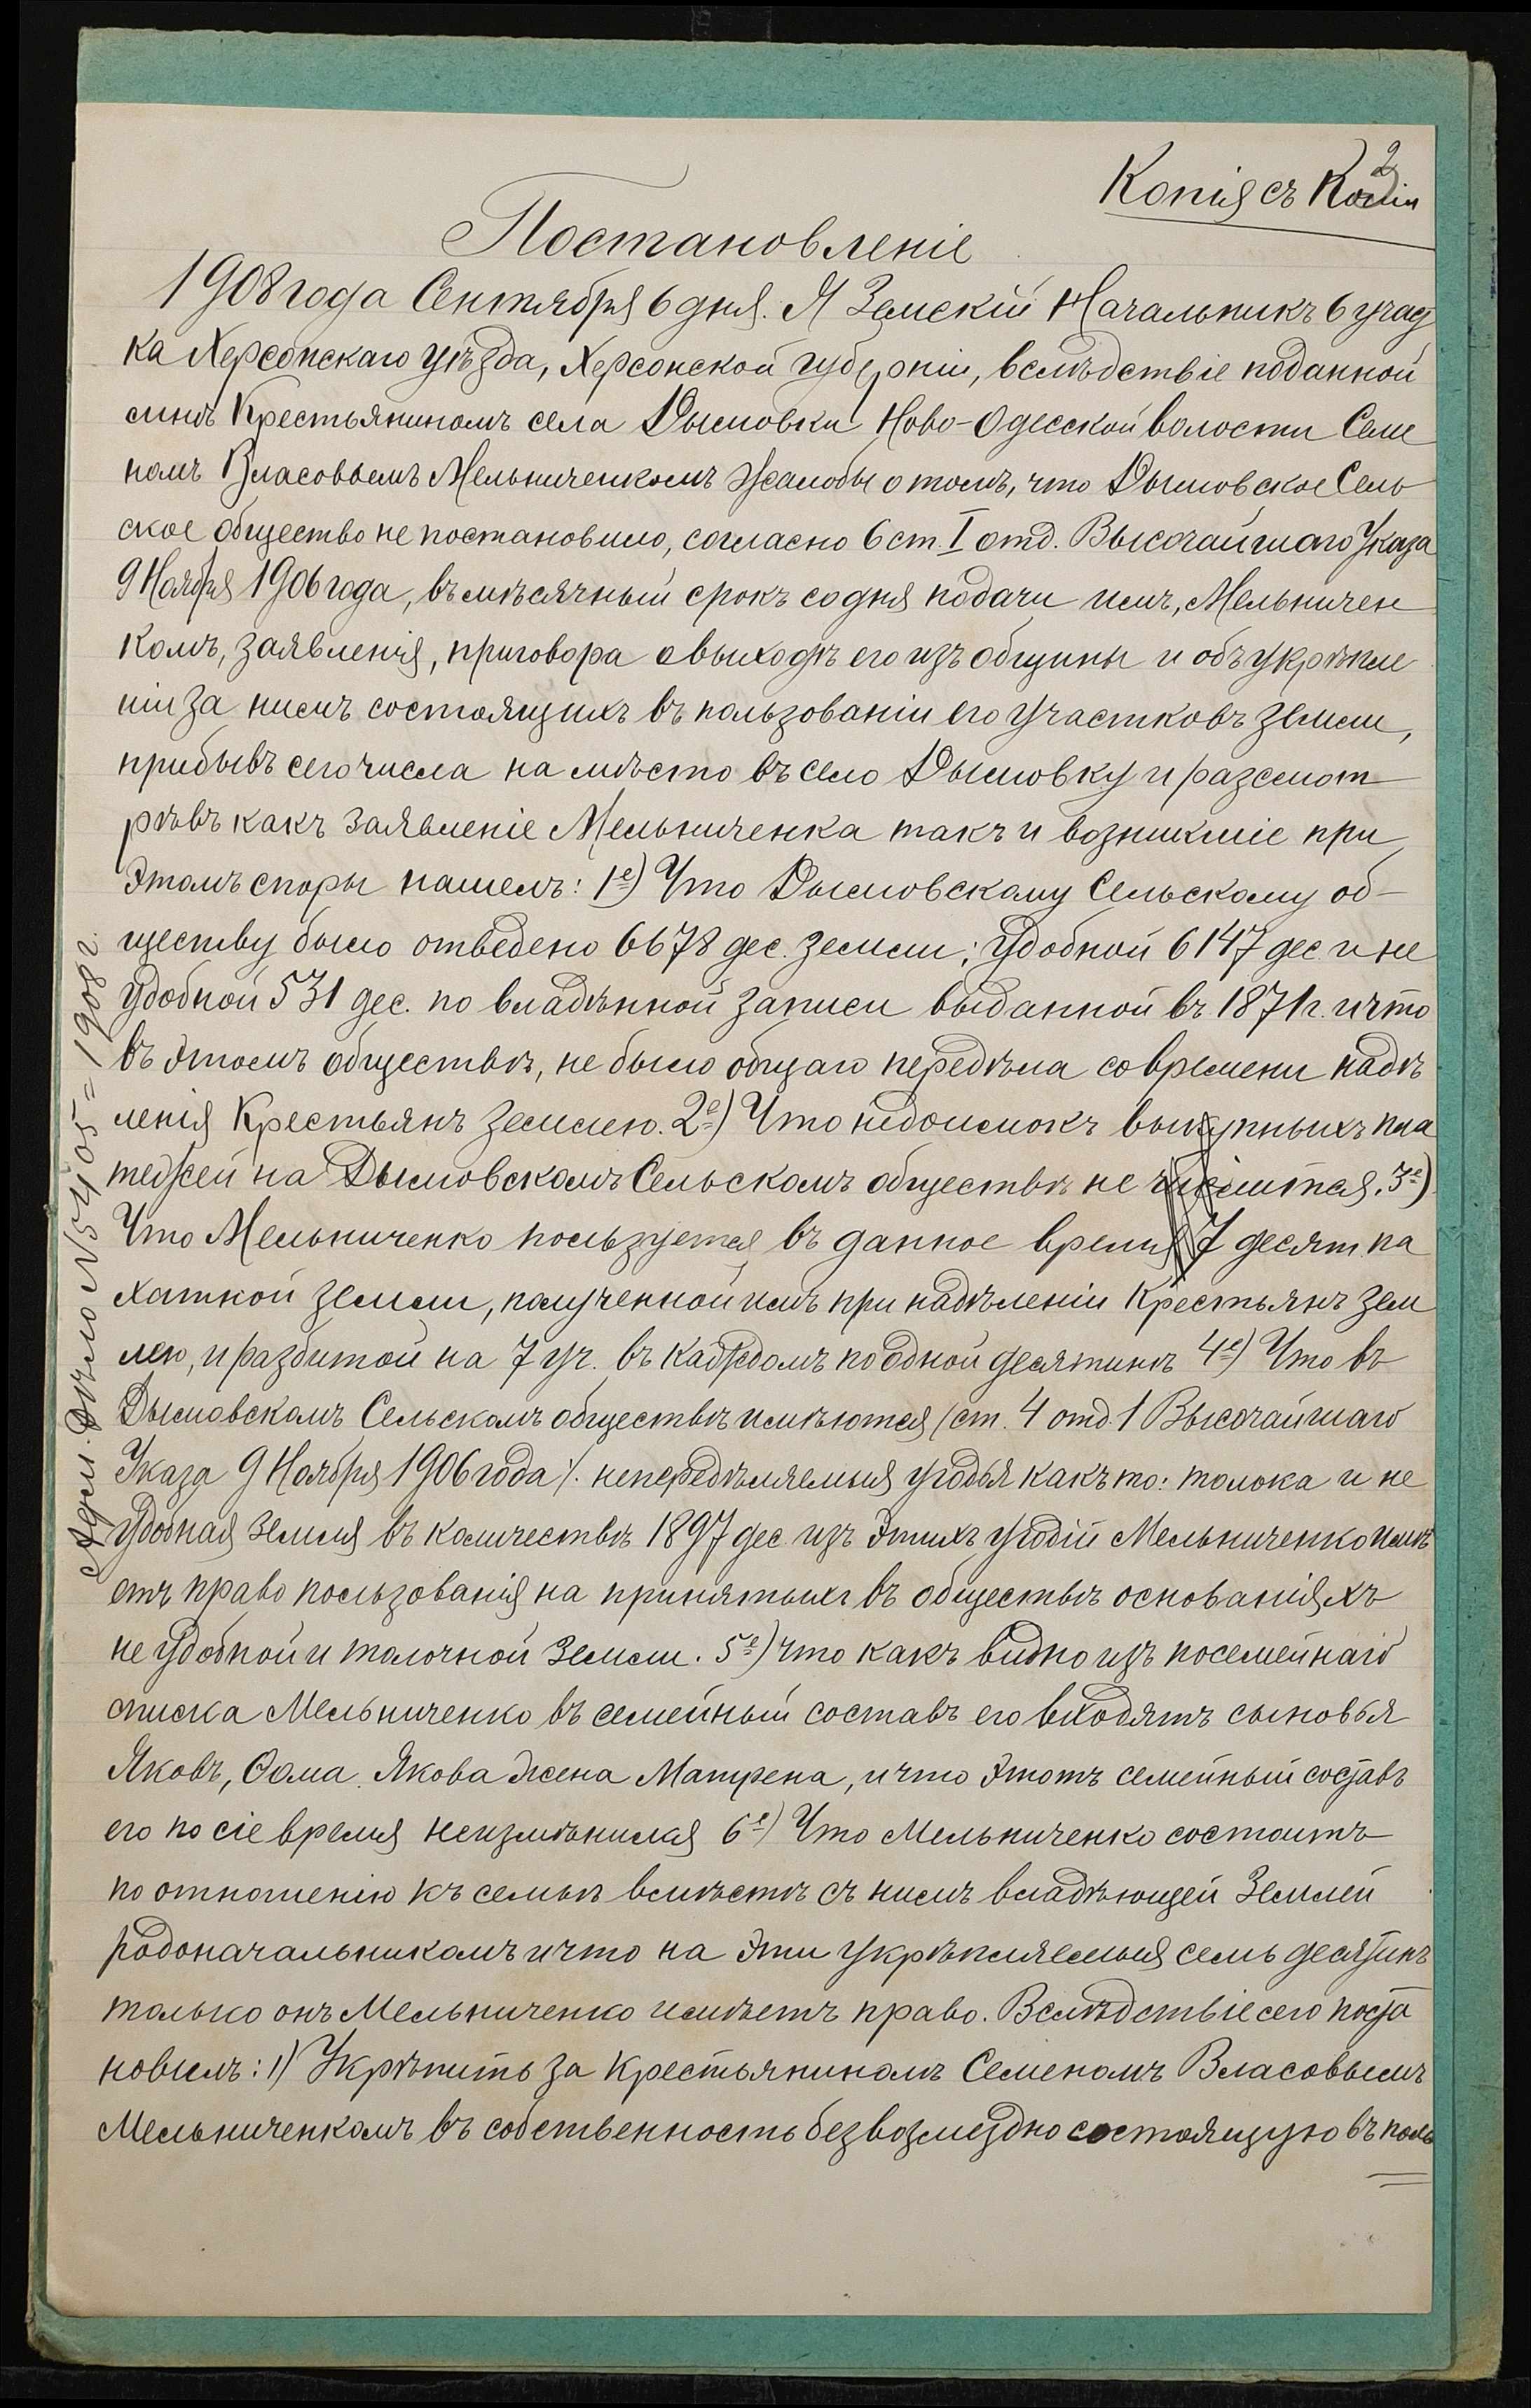 2
Копія съ Копіи
Постановленіе
1908 года Сентября 6 дня. Я Земскій Начальникъ 6 учас
ка Херсонскаго уѣзда, Херсонской губерніи, вслѣдствіе поданной
мнѣ Крестьяниномъ села Дымовки Ново-Одесской волости Семе
номъ Власовымъ Мельниченкомъ жалобы о томъ, что Дымовское Сель
ское общество не постановило, согласно 6 ст. I отд. Высочайшаго Указа
9 Ноября 1906 года, въ мѣсячный срокъ со дня подачи имъ, Мельничен
комъ, заявленія, приговора о выходѣ его изъ общины и объ укрѣпле
ніи за нимъ состоящихъ въ пользованіи его участковъ земли,
прибывъ сего числа на мѣсто въ село Дымовку и разсмот
рѣвъ какъ заявленіе Мельниченка такъ и возникшіе при
этомъ споры нашелъ: 1е) Что Дымовскому Сельскому об-
ществу было отведено 6678 дес. земли; удобной 6147 дес. и не
удобной 531 дес. по владѣнной записи выданной въ 1871 г. и что
въ этомъ обществѣ, не было общаго передѣла со времени надѣ
ленія Крестьянъ землею. 2е) Что недоимокъ выкупныхъ пла
тежей на Дымовскомъ Сельскомъ обществѣ не числится. 3е)
Что Мельниченко пользуется въ данное время 7 десят. па
хатной земли, полученной имъ при надѣленіи Крестьянъ зем
лею, и разбитой на 7 уч. въ каждомъ по одной десятинѣ 4е) Что въ
Дымовскомъ Сельскомъ обществѣ имѣются /ст. 4 отд. 1 Высочайшаго
Указа 9 Ноября 1906 года/. непередѣляемыя угодья какъ то: толока и не
удобная земля въ количествѣ 1897 дес. изъ этихъ угодій Мельниченко имѣ
етъ право пользованія на принятыхъ въ обществѣ основаніяхъ
не удобной и толочной земли. 5е) что какъ видно изъ посемейнаго
списка Мельниченко въ семейный составъ его входятъ сыновья
Яковъ, Ѳома. Якова жена Матрена, и что этотъ семейный составъ
его по сіе время неизмѣнился 6е) Что Мельниченко состоитъ
по отношенію къ семьѣ вмѣстѣ съ нимъ владѣющей Землей
родоначальникомъ и что на эти укрѣпляемыя семь десятинъ
только онъ Мельниченко имѣетъ право. Вслѣдствіе сего поста
новилъ: 1) Укрѣпить за Крестьяниномъ Семеномъ Власовымъ
Мельниченкомъ въ собственность безвозмездно состоящую въ поль
Адм. Дѣло № 5405 = 1908 г.